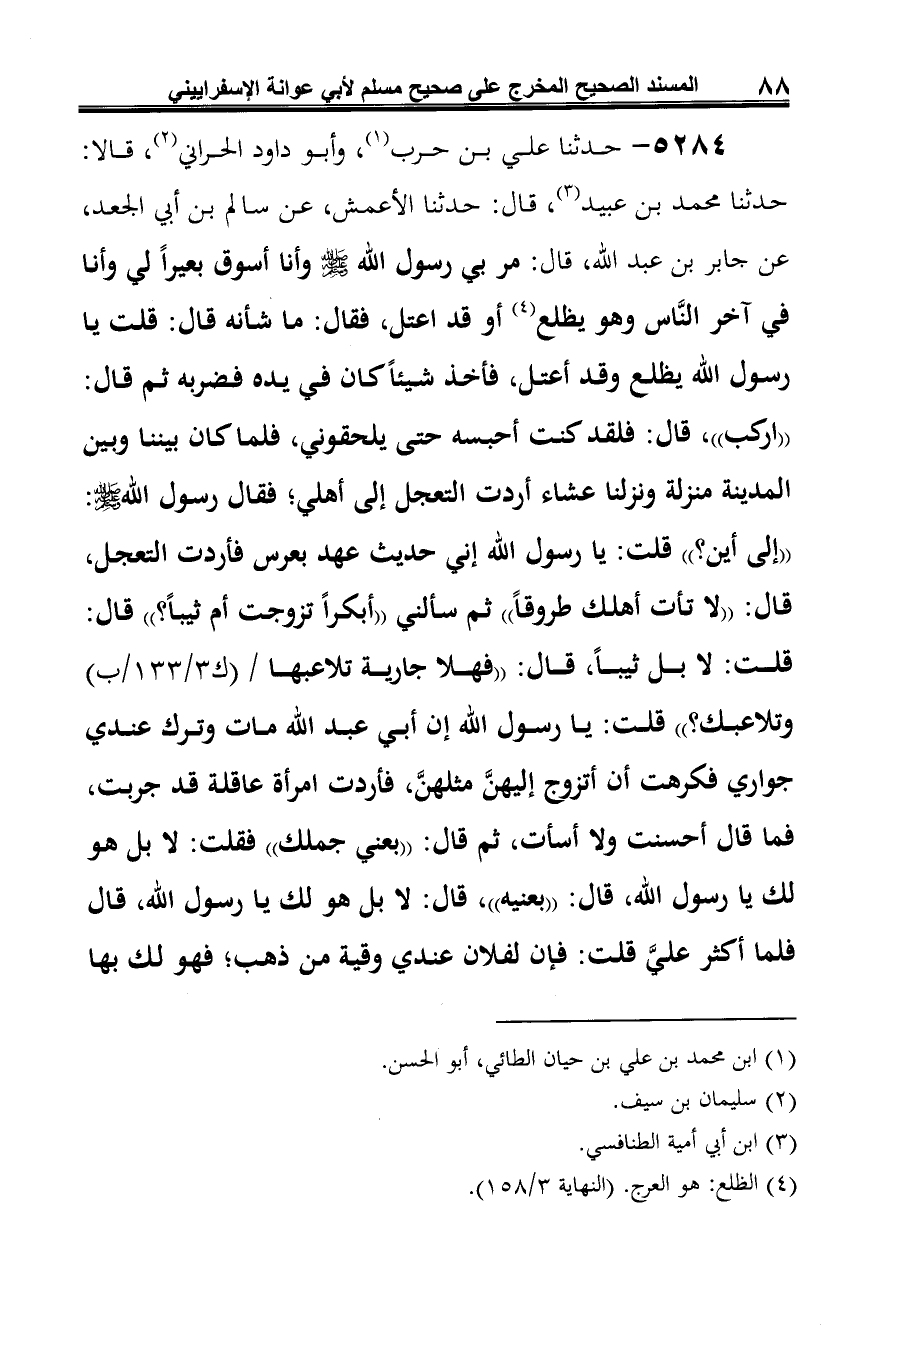 ٨٨ المسند الصحيح المخرج على صحيح مسلم لأبي عوانة الإسفراييني
٥٢٨٤- حدثنا علي بن حرب(١)، وأبو داود الحراني(٢)، قالا:
حدثنا محمد بن عبيد(٣)، قال: حدثنا الأعمش، عن سالم بن أبي الجعد،
عن جابر بن عبد الله، قال: مر بي رسول الله ﷺ وأنا أسوق بعيراً لي وأنا
في آخر النَّاس وهو يظلع(٤) أو قد اعتل، فقال: ما شأنه قال: قلت يا
رسول الله يظلع وقد أعتل، فأخذ شيئاً كان في يده فضربه ثم قال:
((اركب))، قال: فلقد كنت أحبسه حتى يلحقوني، فلما كان بيننا وبين
المدينة منزلة ونزلنا عشاء أردت التعجل إلى أهلي؛ فقال رسول الله ﷺ:
((إلى أين؟)) قلت: يا رسول الله إني حديث عهد بعرس فأردت التعجل،
قال: ((لا تأت أهلك طروقاً)) ثم سألني ((أبكراً تزوجت أم ثيباً؟)) قال:
قلت: لا بل ثيباً، قال: ((فهلا جارية تلاعبها / (ك٣/١٣٣/ب)
وتلاعبك؟)) قلت: يا رسول الله إن أبي عبد الله مات وترك عندي
جواري فكرهت أن أتزوج إليهنَّ مثلهنَّ، فأردت امرأة عاقلة قد جربت،
فما قال أحسنت ولا أسأت، ثم قال: ((بعني جملك)) فقلت: لا بل هو
لك يا رسول الله، قال: ((بعنيه))، قال: لا بل هو لك يا رسول الله، قال
فلما أكثر عليَّ قلت: فإن لفلان عندي وقية من ذهب؛ فهو لك بها
(١) ابن محمد بن علي بن حيان الطائي، أبو الحسن.
(٢) سليمان بن سيف.
(٣) ابن أبي أمية الطنافسي.
(٤) الظلع: هو العرج. (النهاية ١٥٨/٣).